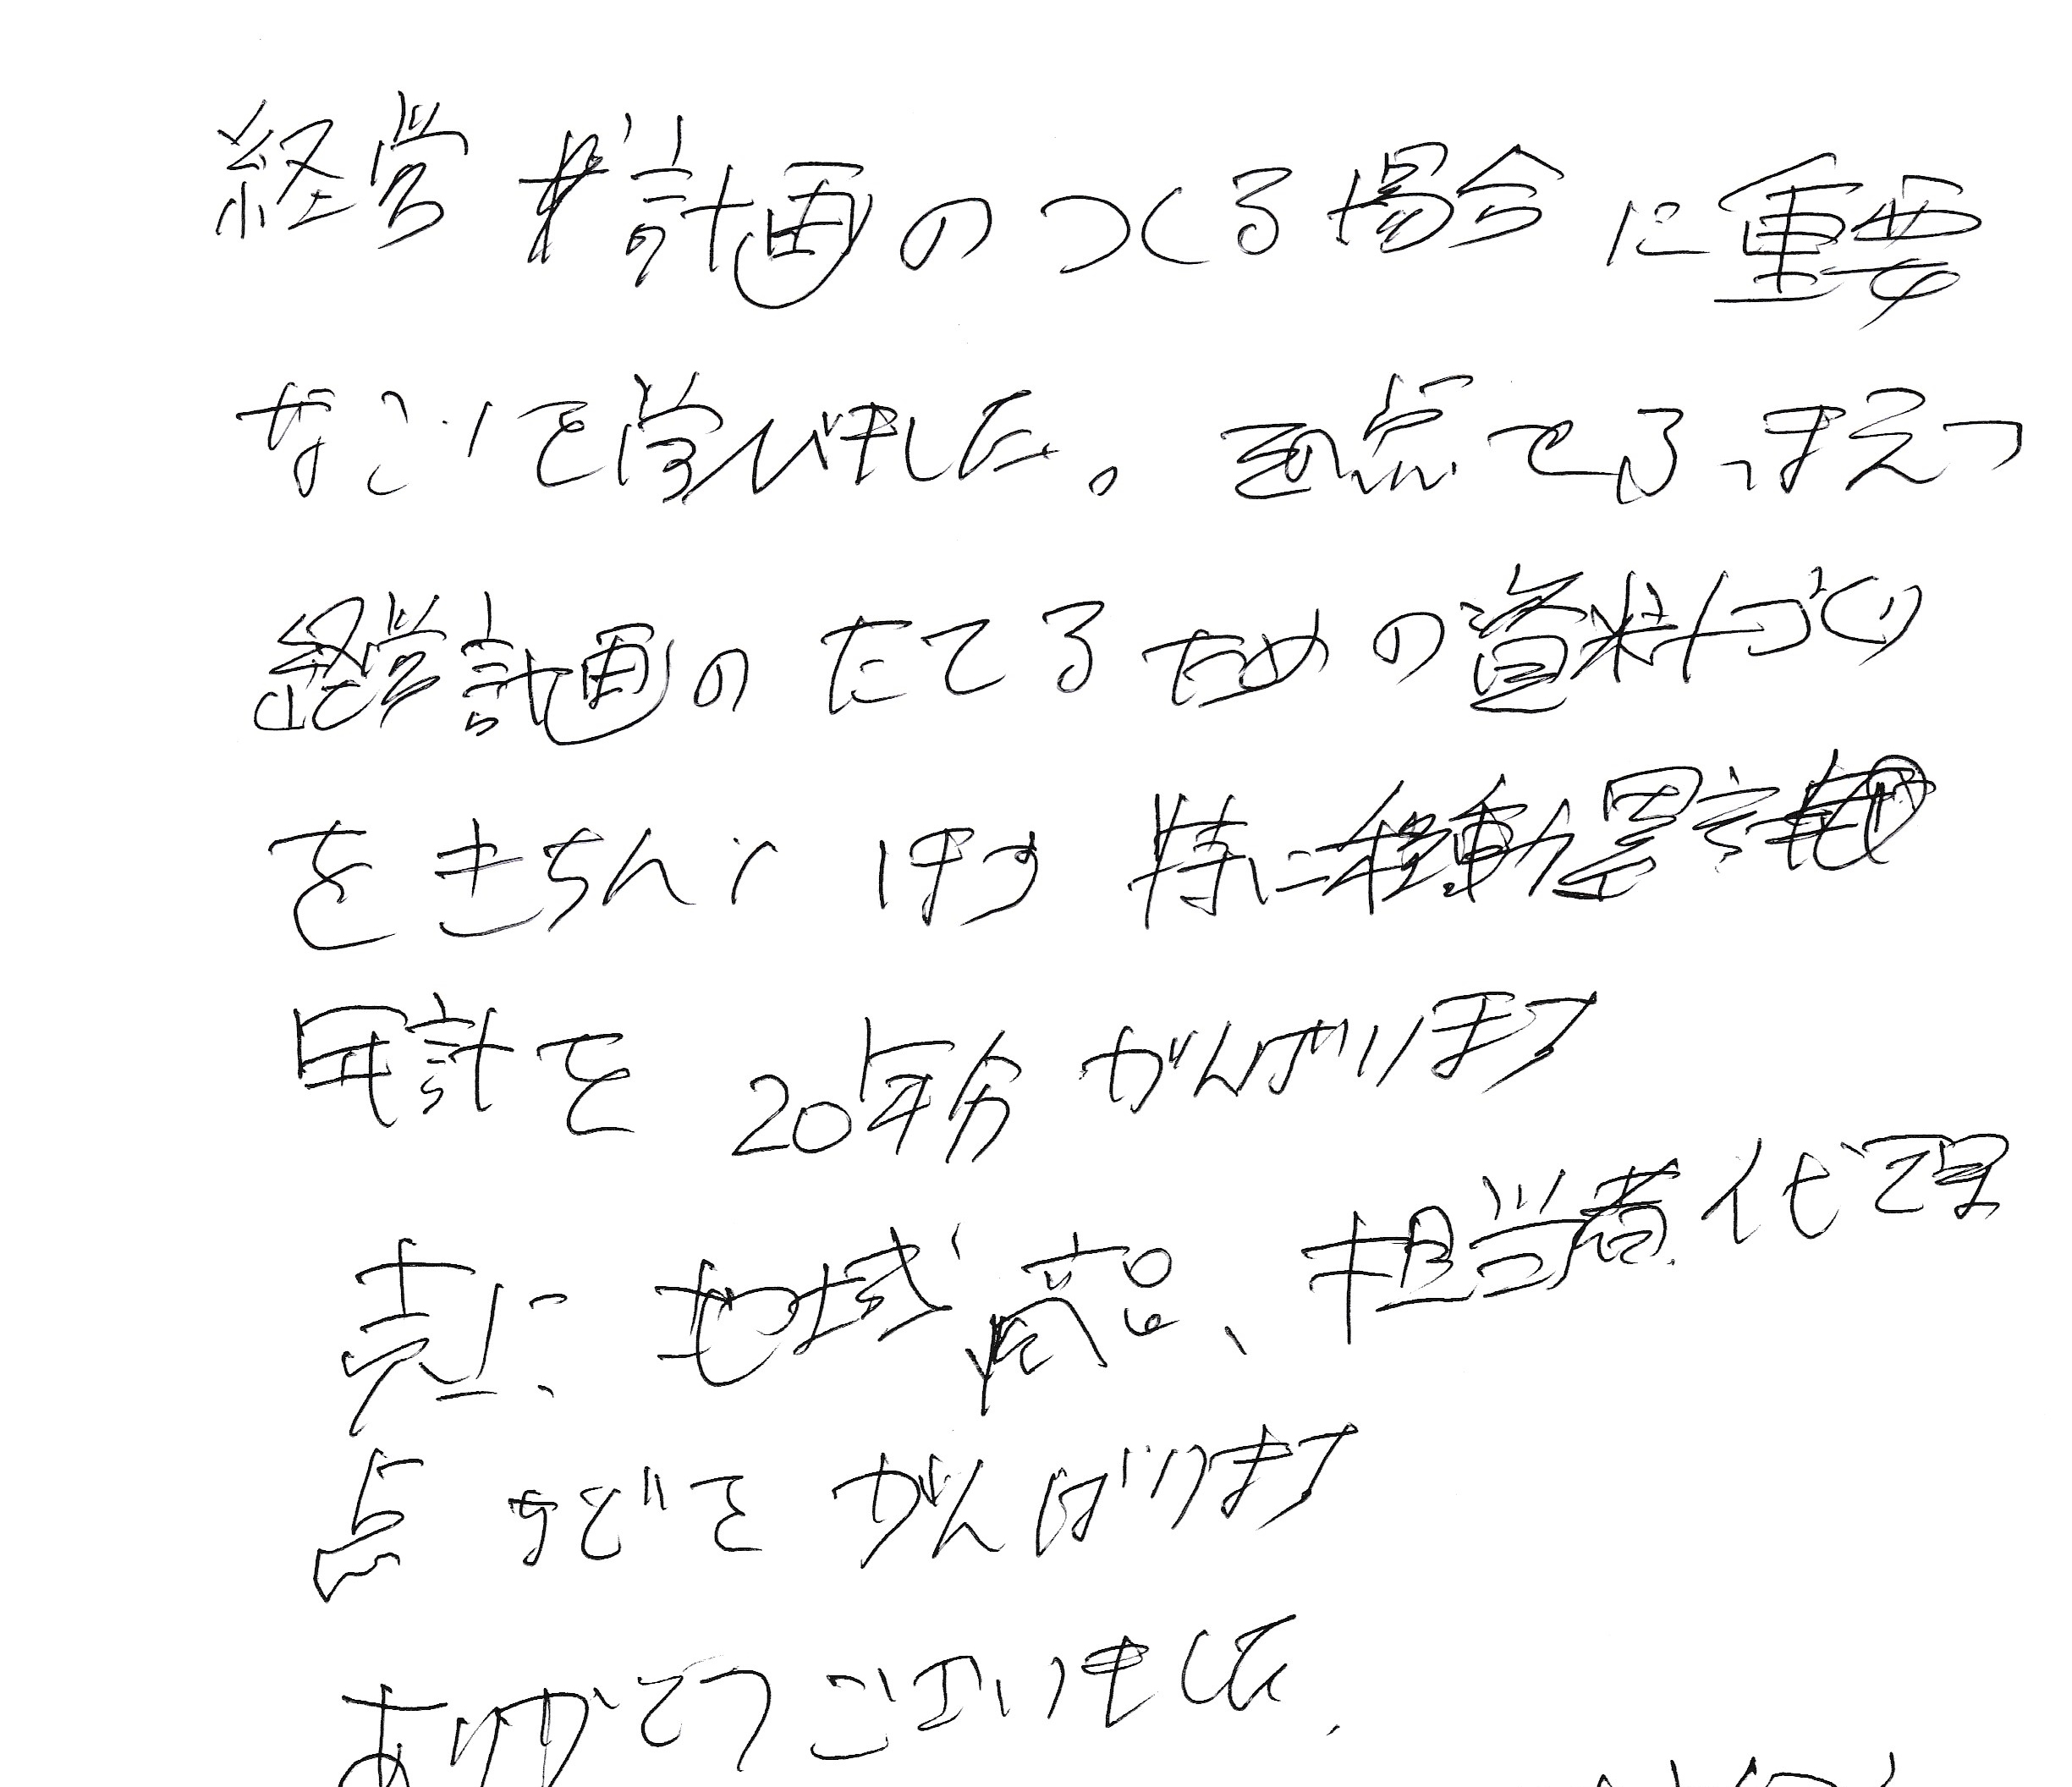 経営計画のつくる場合に重要
なことを学びました。
経営計画のたてるための資料づくり
をきちんと します 特に移動累計
累計を 20年分 がんばります
更に 地域 商品、担当者 代理
点 などを がんばります
ありがとうございました